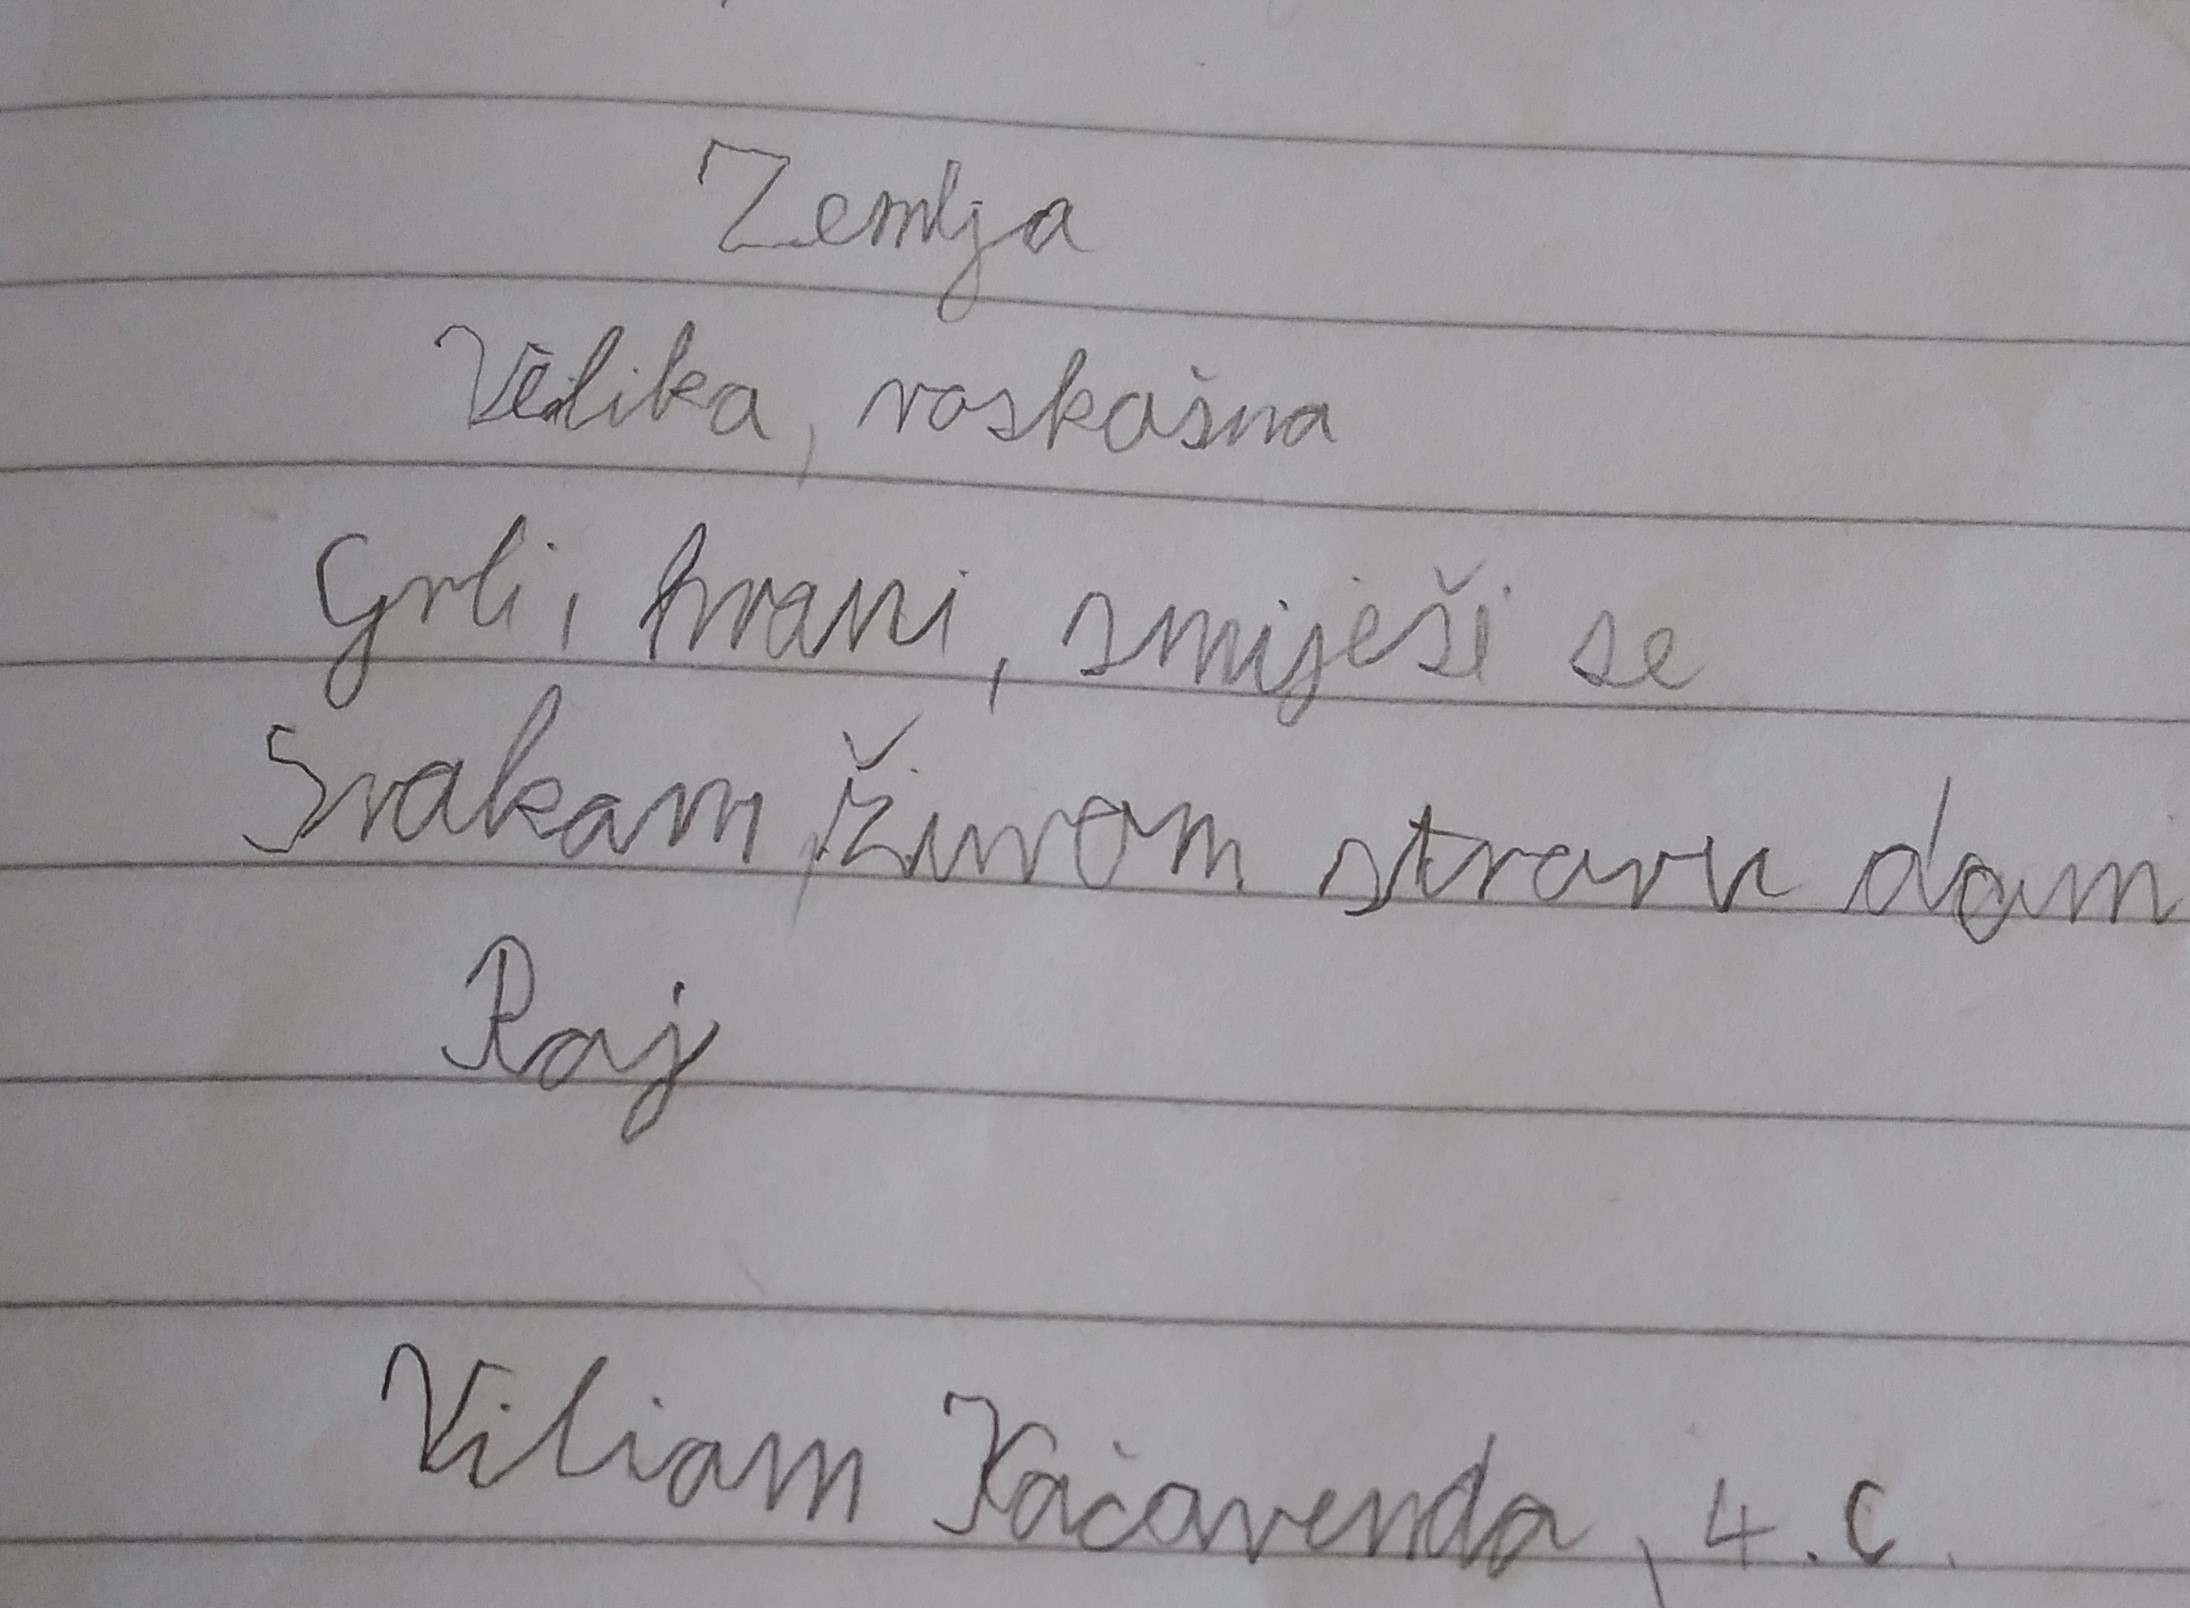 Zemlja
Velika, roskošna
Grli, hrani, smiješi se
Svakom živom stvoru dom
Raj
Viliam Kačavenda, 4.c